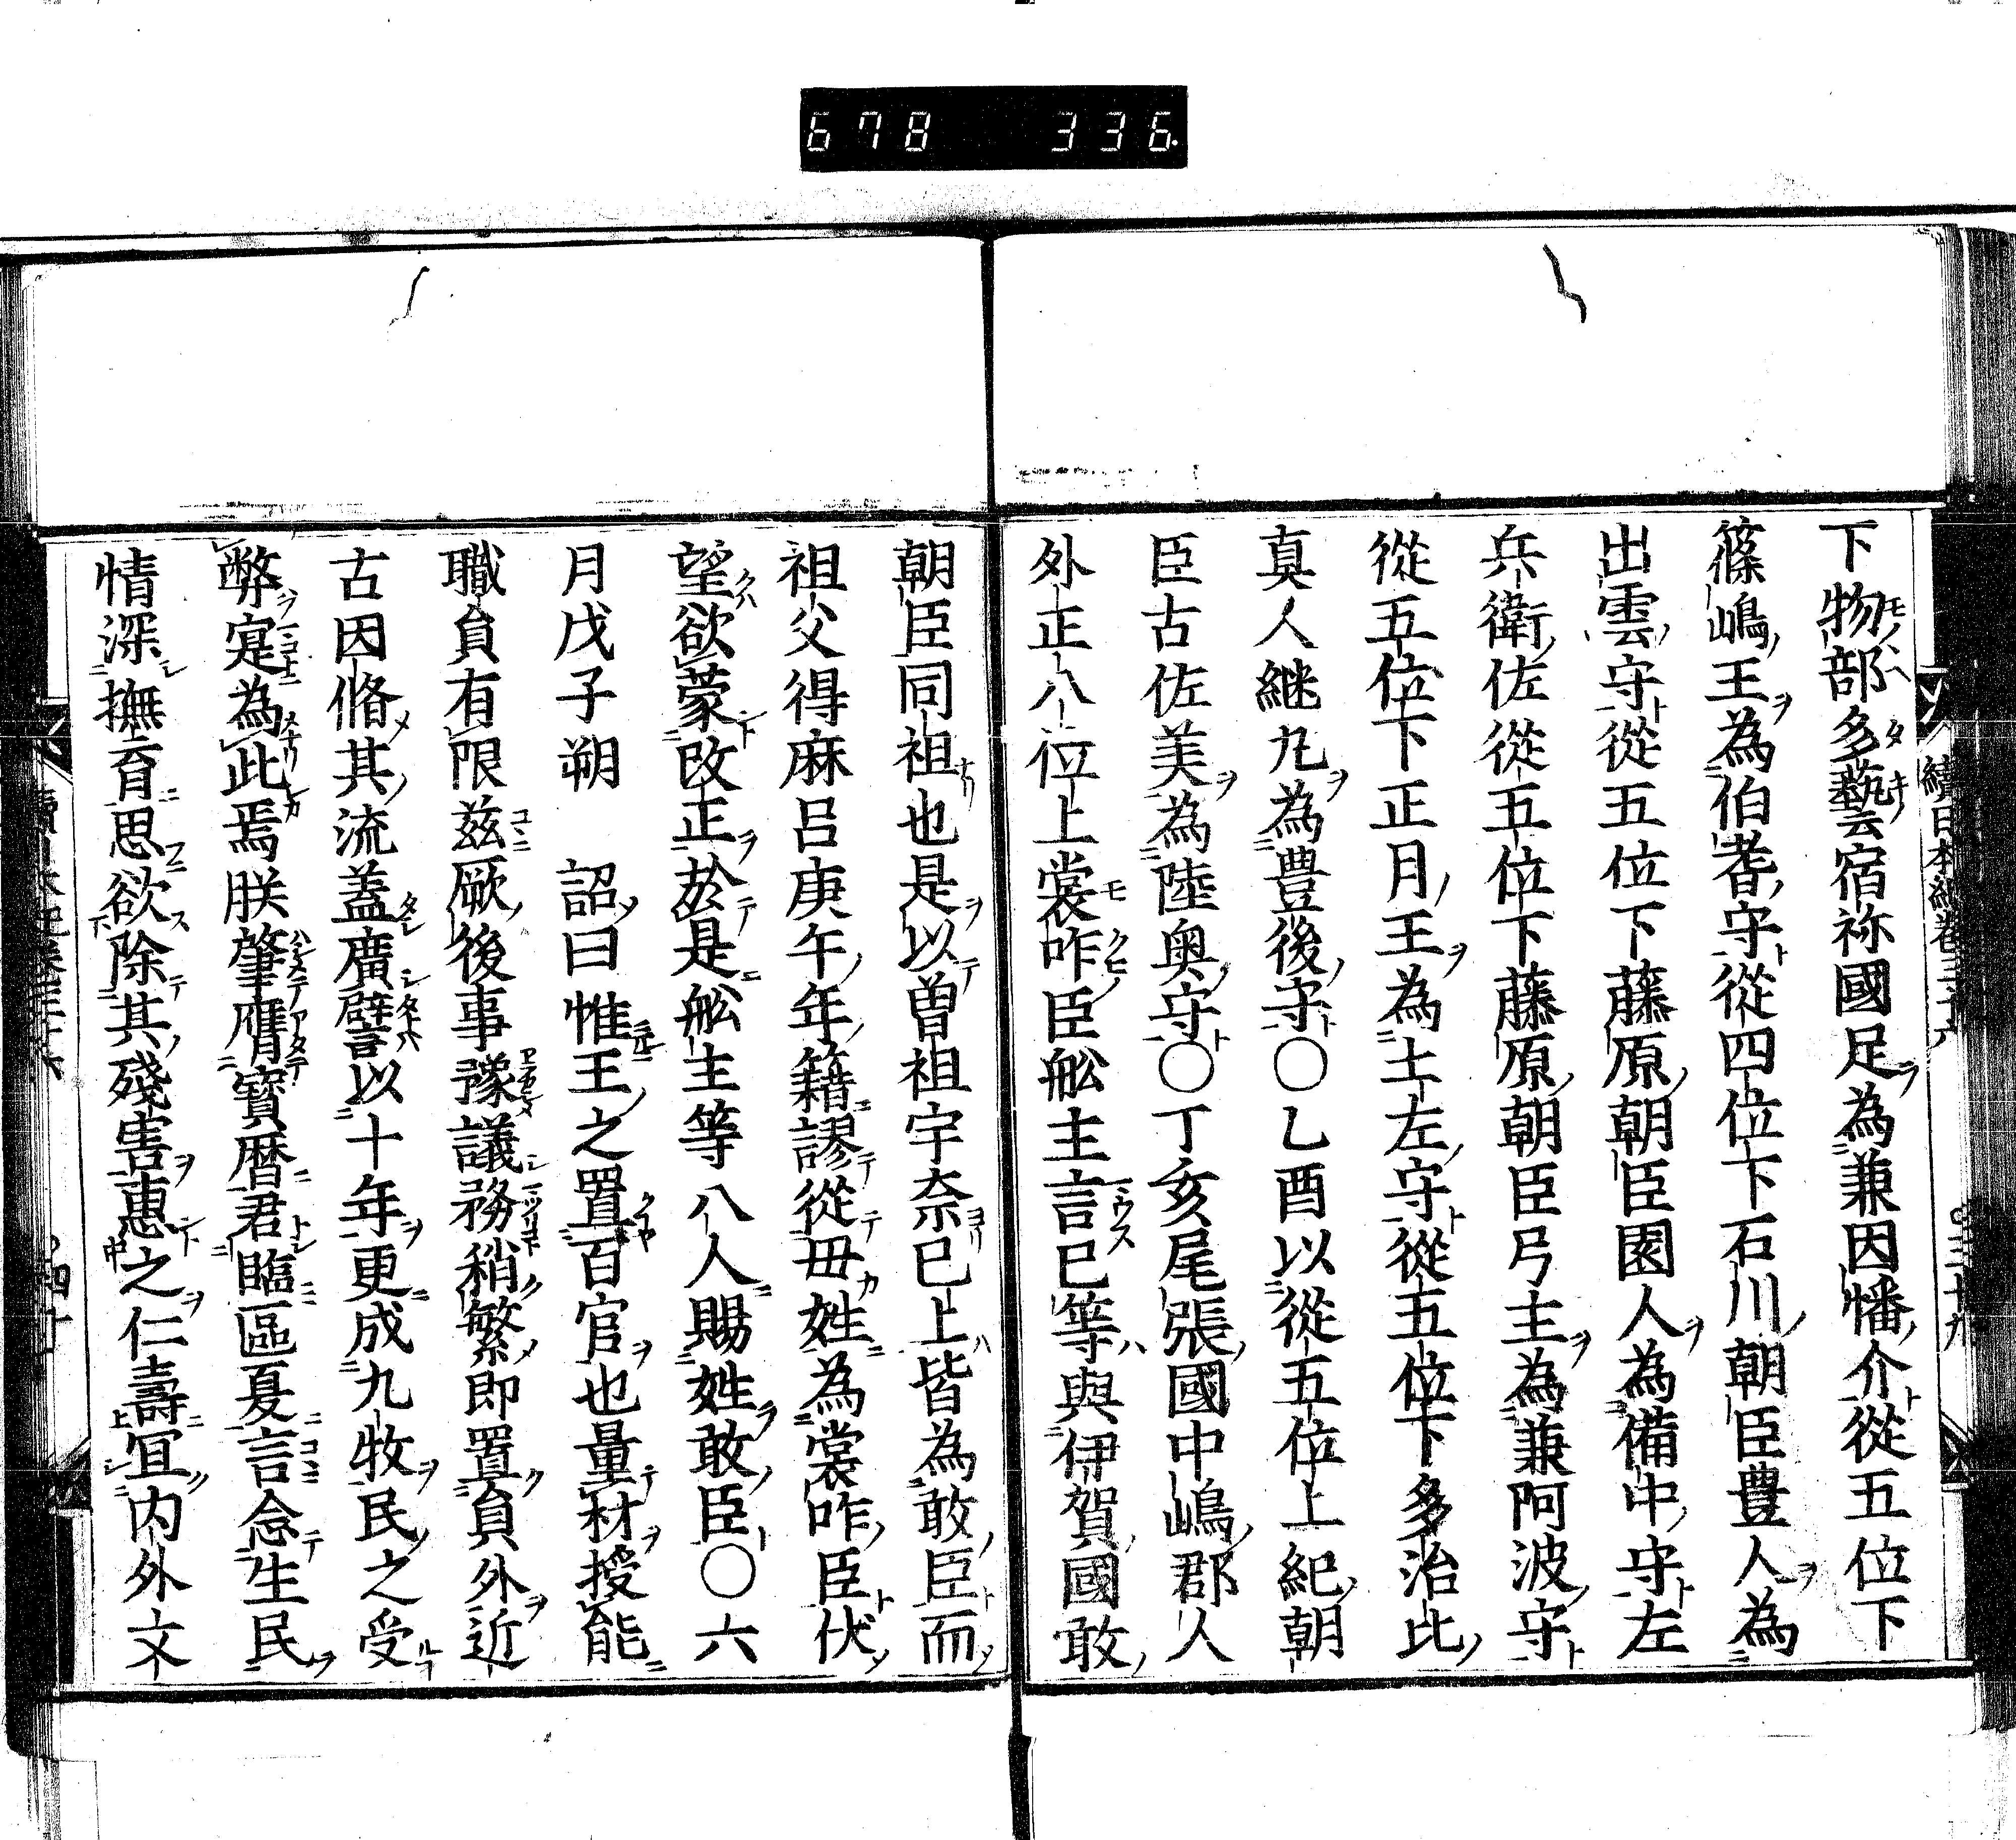 678 336
下物部多藝宿祢國足為兼因幡介從五位下
篠嶋王為伯耆守從四位下石川朝臣豊人為
出雲守從五位下藤原朝臣園人為備中守左
兵衛佐從五位下藤原朝臣弓主為兼阿波守
從五位下正月王為土左守從五位下多治比
真人継丸為豊後守○乙酉以從五位上紀朝
臣古佐美為陸奥守○丁亥尾張國中嶋郡人
外正八位上裳咋臣舩主言巳等與伊賀國敢
朝臣同祖也是以曽祖宇奈巳上皆為敢臣而
祖父得麻呂庚午年籍謬從毋姓為裳咋臣伏
望欲蒙改正於是舩主等八人賜姓敢臣○六
月戊子朔 詔曰惟王之置百官也量材授能
職負有限茲厥後事豫議務稍繁即置負外近
古因脩其流蓋廣譬以十年更成九牧民之受
弊寔為此焉朕肇膺寳暦君臨區夏言念生民
情深撫育思欲除其殘害惠之仁壽冝内外文